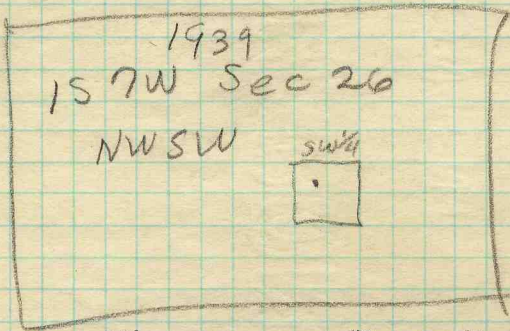 1939
1S 7W Sec 26
NWSW
SW¼